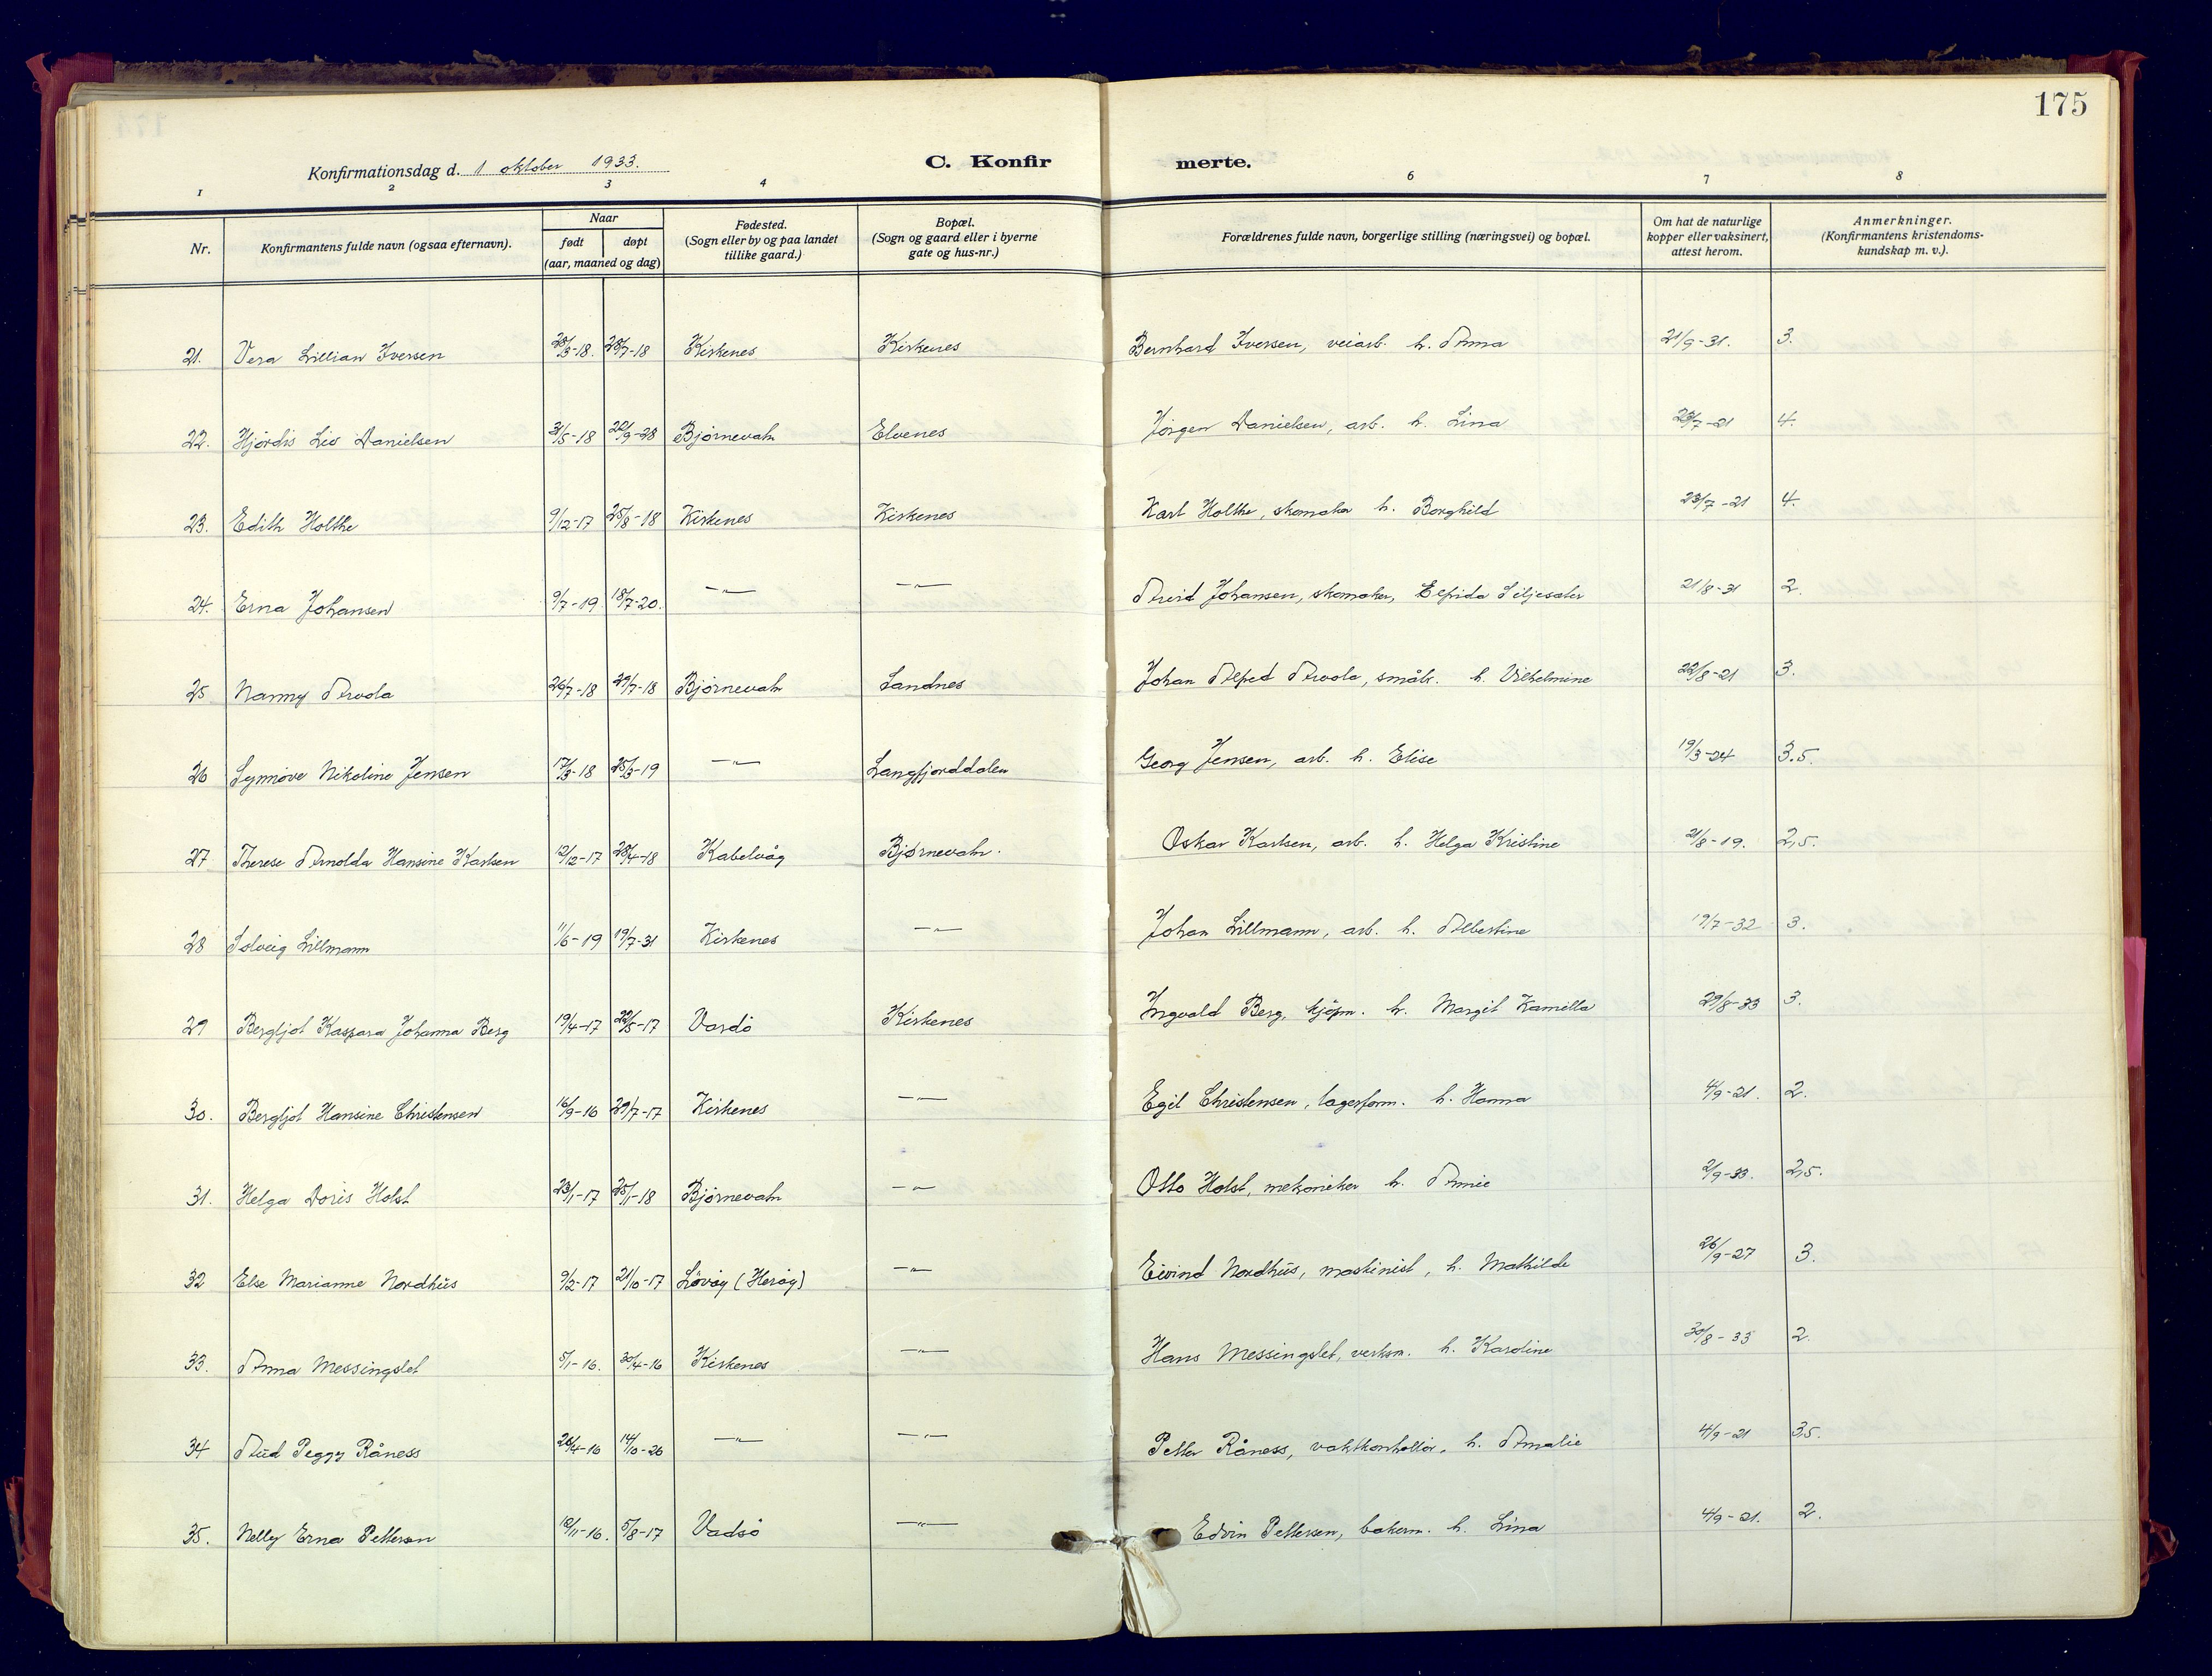 175
Konfirmationsdag d. 1 oktober 1933.
C. Konfirmerte.
1 2 3 4 6 7 8
Nr. | Konfirmantens fulde navn (ogsaa efternavn). | Naar født døpt (aar, maaned og dag) | Fødested. (Sogn eller by og paa landet tillike gaard.) | Bopæl. (Sogn og gaard eller i byerne gate og hus-nr.) | Forældrenes fulde navn, borgerlige stilling (næringsvei) og bopæl. | Om hat de naturlige kopper eller vaksinert, attest herom. | Anmerkninger. (Konfirmantens kristendomskundskap m. v.).
21. Vera Lillian Iversen 28/3-18. 28/7-18 Kirkenes Kirkenes Bernhard Iversen, veiarb. h. Anna 21/9-31. 3.
22. Hjördis Liv Danielsen 31/5-18 22/9-28 Bjørnevatn Elvenes Jörgen Danielsen, arb. h. Lina 23/7-21 4.
23. Edith Holthe 9/12-17 25/8-18 Kirkenes Kirkenes Karl Holthe, skomaker h. Borghild 23/7-21 4.
24. Erna Johansen 9/7-19 18/7-20. —"— —"— Arvid Johansen, skomaker, Elfrida Siljesæter 21/8-31 2.
25 Nanny Arvola 26/7-18 29/7-18 Bjørnevatn Sandnes Johan Alfred Arvola, småbr. h. Vilhelmine 22/8-21 3.
26 Synnöve Nikoline Jensen 17/3-18 25/3-19 —"— Langfjorddalen Georg Jensen, arb. h. Elise 19/3-24 3.5.
27 Therese Arnolda Hansine Karlsen 12/12-17 28/4-18 Kabelvåg Bjørnevatn. Oskar Karlsen, arb. h. Helga Kristine 21/8-19. 2,5.
28 Solveig Lillmann 11/6-19 19/7-31 Kirkenes —"— Johan Lillmann, arb. h. Albertine 19/7-32 3.
29 Bergljot Kaspara Johanna Berg 19/4-17 22/5-17 Vardö Kirkenes Ingvald Berg, kjöpm. h. Margit Kamilla 29/8-33 3.
30. Bergljot Hansine Christensen 16/9-16 29/7-17 Kirkenes —"— Egil Christensen, lagerform. h. Hanna 4/9-21. 2.
31. Helga Doris Holst 23/1-17 25/1-18 Bjørnevatn —"— Otto Holst, mekaniker h. Annie 2/9-33. 2,5.
32 Else Marianne Nordhus 9/2-17 21/10-17 Lövöy (Heröy) —"— Eivind Nordhus, maskinist, h. Mathilde 26/9-27 3.
33. Anna Messingslet 5/1-16. 30/4-16 Kirkenes —"— Hans Messingslet, verksm. h. Karoline 30/8-33 2.
34 Aud Peggy Råness 26/4-16 14/10-26 —"— —"— Petter Råness, vaktkontrollör. h. Amalie 4/9-21 3,5.
35. Nelly Erna Pettersen 10/11-16. 5/8-17 Vadsö —"— Edvin Pettersen, bakerm. h. Lina 4/9-21. 2.